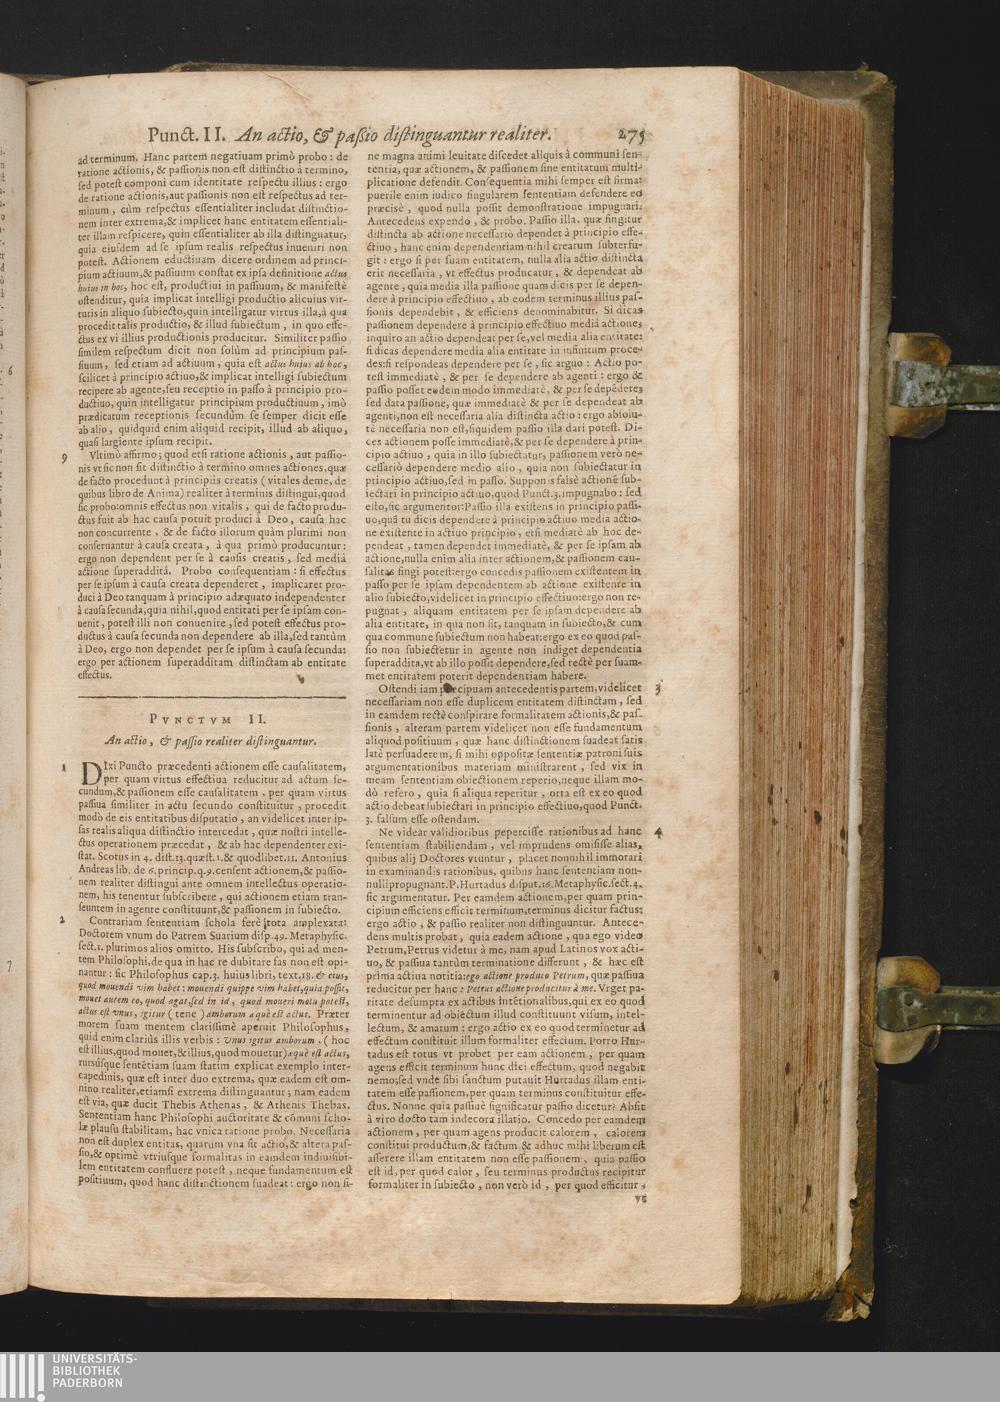 Punct. II. An actio, & paſsio diſtinguantur realiter. 275
ad terminum. Hanc partem negatiuam primò probo : de
ratione actionis, & paſſionis non eſt diſtinctio à termino,
ſed poteſt componi cum identitate reſpectu illius : ergo
de ratione actionis,aut paſſionis non eſt reſpectus ad ter-
minum , cùm reſpectus eſſentialiter includat diſtinctio-
nem inter extrema,& implicet hanc entitatem eſſentiali-
ter illam reſpicere, quin eſſentialiter ab illa diſtinguatur,
quia eiuſdem ad ſe ipſum realis reſpectus inueniri non
poteſt. Actionem eductiuam dicere ordinem ad princi-
pium actiuum,& paſſiuum conſtat ex ipſa definitione actus
huius in hoc, hoc eſt, productiui in paſſiuum, & manifeſtè
oſtenditur, quia implicat intelligi productio alicuius vir-
tutis in aliquo ſubiecto,quin intelligatur virtus illa,à qua
procedit talis productio, & illud ſubiectum , in quo effe-
ctus ex vi illius productionis producitur. Similiter paſſio
ſimilem reſpectum dicit non ſolùm ad principium paſ-
ſiuum , ſed etiam ad actiuum , quia eſt actus huius ab hoc ,
ſcilicet à principio actiuo,& implicat intelligi ſubiectum
recipere ab agente,ſeu receptio in paſſo à principio pro-
ductiuo, quin intelligatur principium productiuum , imò
prædicatum receptionis ſecundùm ſe ſemper dicit eſſe
ab alio , quidquid enim aliquid recipit, illud ab aliquo,
quaſi largiente ipſum recipit.
9 Vltimò affirmo; quod etſi ratione actionis , aut paſſio-
nis vt ſic non ſit diſtinctio à termino omnes actiones,quæ
de facto procedunt à principiis creatis ( vitales deme, de
quibus libro de Anima) realiter à terminis diſtingui,quod
ſic probo:omnis effectus non vitalis , qui de facto produ-
ctus fuit ab hac cauſa potuit produci à Deo, cauſa hac
non concurrente , & de facto illorum quàm plurimi non
conſeruantur à cauſa creata , à qua primò producuntur:
ergo non dependent per ſe à cauſis creatis , ſed mediâ
actione ſuperadditâ. Probo conſequentiam : ſi effectus
per ſe ipſum à cauſa creata dependeret , implicaret pro-
duci à Deo tanquam à principio adæquato independenter
à cauſa ſecunda,quia nihil,quod entitati per ſe ipſam con-
uenit , poteſt illi non conuenire , ſed poteſt effectus pro-
ductus à cauſa ſecunda non dependere ab illa,ſed tantùm
à Deo, ergo non dependet per ſe ipſum à cauſa ſecunda:
ergo per actionem ſuperadditam diſtinctam ab entitate
effectus.
PVNCTVM II.
An actio, & paſſio realiter diſtinguantur.
1 DIxi Puncto præcedenti actionem eſſe cauſalitatem,
per quam virtus effectiua reducitur ad actum ſe-
cundum,& paſſionem eſſe cauſalitatem , per quam virtus
paſſiua ſimiliter in actu ſecundo conſtituitur , procedit
modò de eis entitatibus diſputatio , an videlicet inter ip-
ſas realis aliqua diſtinctio intercedat , quæ noſtri intelle-
ctus operationem præcedat , & ab hac dependenter exi-
ſtat. Scotus in 4. diſt.13.quæſt.1.& quodlibet.11. Antonius
Andreas lib. de 6.princip.q.9.cenſent actionem,& paſſio-
nem realiter diſtingui ante omnem intellectus operatio-
nem, his tenentur ſubſcribere , qui actionem etiam tran-
ſeuntem in agente conſtituunt,& paſſionem in ſubiecto.
2 Contrariam ſententiam ſchola ferè tota amplexata:
Doctorem vnum do Patrem Suarium diſp.49. Metaphyſic.
ſect.1. plurimos alios omitto. His ſubſcribo, qui ad men-
tem Philoſophi,de qua in hac re dubitare fas non eſt opi-
nantur : ſic Philoſophus cap.3. huius libri, text.18. & eius,
quod mouendi vim habet : mouendi quippe vim habet,quia poſſit,
mouet autem eo, quod agat,ſed in id , quod moueri motu poteſt,
actus eſt vnus, igitur ( tene ) amborum æquè eſt actus. Præter
morem ſuam mentem clariſſimè aperuit Philoſophus,
quid enim clariùs illis verbis : Vnus igitur amborum , ( hoc
eſt illius,quod mouet,& illius,quod mouetur)æquè eſt actus,
rurſúſque ſentētiam ſuam ſtatim explicat exemplo inter-
capedinis, quæ eſt inter duo extrema, quæ eadem eſt om-
nino realiter,etiamſi extrema diſtinguantur ; nam eadem
eſt via, quæ ducit Thebis Athenas , & Athenis Thebas.
Sententiam hanc Philoſophi auctoritate & cōmuni ſcho-
læ plauſu ſtabilitam, hac vnica ratione probo. Neceſſaria
non eſt duplex entitas, quarum vna ſit actio,& altera paſ-
ſio,& optimè vtriuſque formalitas in eamdem indiuiſibi-
lem entitatem confluere poteſt , neque fundamentum eſt
poſitiuum, quod hanc diſtinctionem ſuadeat : ergo non ſi-
ne magna animi leuitate diſcedet aliquis à communi ſen-
tentia, quæ actionem, & paſſionem ſine entitatum multi-
plicatione defendit. Conſequentia mihi ſemper eſt firma:
puerile enim iudico ſingularem ſententiam defendere eo
præciſè , quod nulla poſſit demonſtratione impugnari.
Antecedens expendo , & probo. Paſſio illa, quæ fingitur
diſtincta ab actione neceſſariò dependet à principio effe-
ctiuo , hanc enim dependentiam nihil creatum ſubterfu-
git : ergo ſi per ſuam entitatem, nulla alia actio diſtincta
erit neceſſaria , vt effectus producatur , & dependeat ab
agente , quia media illa paſſione quam dicis per ſe depen-
dere à principio effectiuo , ab eodem terminus illius paſ-
ſionis dependebit , & efficiens denominabitur. Si dicas
paſſionem dependere à principio effectiuo mediâ actione,
inquiro an actio dependeat per ſe,vel media alia entitate:
ſi dicas dependere media alia entitate in infinitum proce-
des:ſi reſpondeas dependere per ſe , ſic arguo : Actio po-
teſt immediatè , & per ſe dependere ab agenti : ergo &
paſſio poſſet eodem modo immediatè, & per ſe depēdere,
ſed data paſſione, quæ immediatè & per ſe dependeat ab
agenti,non eſt neceſſaria alia diſtincta actio : ergo abſolu-
tè neceſſaria non eſt,ſiquidem paſſio illa dari poteſt. Di-
ces actionem poſſe immediatè,& per ſe dependere à prin-
cipio actiuo , quia in illo ſubiectatur, paſſionem verò ne-
ceſſariò dependere medio alio , quia non ſubiectatur in
principio actiuo,ſed in paſſo. Supponis falsè actionē ſub-
iectari in principio actiuo,quod Punct.3.impugnabo : ſed
eſto,ſic argumentor:Paſſio illa exiſtens in principio paſſi-
uo,quā tu dicis dependere à principio actiuo media actio-
ne exiſtente in actiuo principio, etſi mediatè ab hoc de-
pendeat , tamen dependet immediatè, & per ſe ipſam ab
actione,nulla enim alia inter actionem,& paſſionem cau-
ſalitas fingi poteſt:ergo concedis paſſionem exiſtentem in
paſſo per ſe ipſam dependentem ab actione exiſtente in
alio ſubiecto,videlicet in principio effectiuo:ergo non re-
pugnat , aliquam entitatem per ſe ipſam dependere ab
alia entitate, in qua non ſit, tanquam in ſubiecto,& cum
qua commune ſubiectum non habeat:ergo ex eo quod paſ-
ſio non ſubiectetur in agente non indiget dependentia
ſuperaddita,vt ab illo poſſit dependere,ſed rectè per ſuam-
met entitatem poterit dependentiam habere.
Oſtendi iam præcipuam antecedentis partem,videlicet 3
neceſſariam non eſſe duplicem entitatem diſtinctam , ſed
in eamdem rectè conſpirare formalitatem actionis,& paſ-
ſionis , alteram partem videlicet non eſſe fundamentum
aliquod poſitiuum , quæ hanc diſtinctionem ſuadeat ſatis
latè perſuaderem, ſi mihi oppoſitæ ſententiæ patroni ſuis
argumentationibus materiam miniſtrarent , ſed vix in
meam ſententiam obiectionem reperio,neque illam mo-
dò refero , quia ſi aliqua reperitur , orta eſt ex eo quod
actio debeat ſubiectari in principio effectiuo,quod Punct.
3. falſum eſſe oſtendam.
Ne videar validioribus peperciſſe rationibus ad hanc 4
ſententiam ſtabiliendam , vel imprudens omiſiſſe alias,
quibus alij Doctores vtuntur , placet nonnihil immorari
in examinandis rationibus, quibus hanc ſententiam non-
nulli propugnant.P.Hurtadus diſput.16.Metaphyſic.ſect.4.
ſic argumentatur. Per eamdem actionem,per quam prin-
cipium efficiens efficit terminum,terminus dicitur factus:
ergo actio , & paſſio realiter non diſtinguuntur. Antece-
dens multis probat , quia eadem actione , qua ego video
Petrum,Petrus videtur à me, nam apud Latinos vox acti-
uo, & paſſiua tantùm terminatione differunt , & hæc eſt
prima actiua notitia:ego actione produco Petrum, quæ paſſiua
reducitur per hanc : Petrus actione producitur à me. Vrget pa-
ritate deſumpta ex actibus intētionalibus,qui ex eo quod
terminentur ad obiectum illud conſtituunt viſum, intel-
lectum, & amatum : ergo actio ex eo quod terminetur ad
effectum conſtituit illum formaliter effectum. Porro Hur-
tadus eſt totus vt probet per eam actionem , per quam
agens efficit terminum hunc dici effectum, quod negabit
nemo;ſed vnde ſibi ſanctum putauit Hurtadus illam enti-
tatem eſſe paſſionem,per quam terminus conſtituitur effe-
ctus. Nonne quia paſſiuè ſignificatur paſſio dicetur? Abſit
à viro docto tam indecora illatio. Concedo per eamdem
actionem , per quam agens producit calorem , calorem
conſtitui productum,& factum & adhuc mihi liberum eſt
aſſerere illam entitatem non eſſe paſſionem , quia paſſio
eſt id, per quod calor , ſeu terminus productus recipitur
formaliter in ſubiecto , non verò id , per quod efficitur ,
vt
UNIVERSITÄTS-
BIBLIOTHEK
PADERBORN